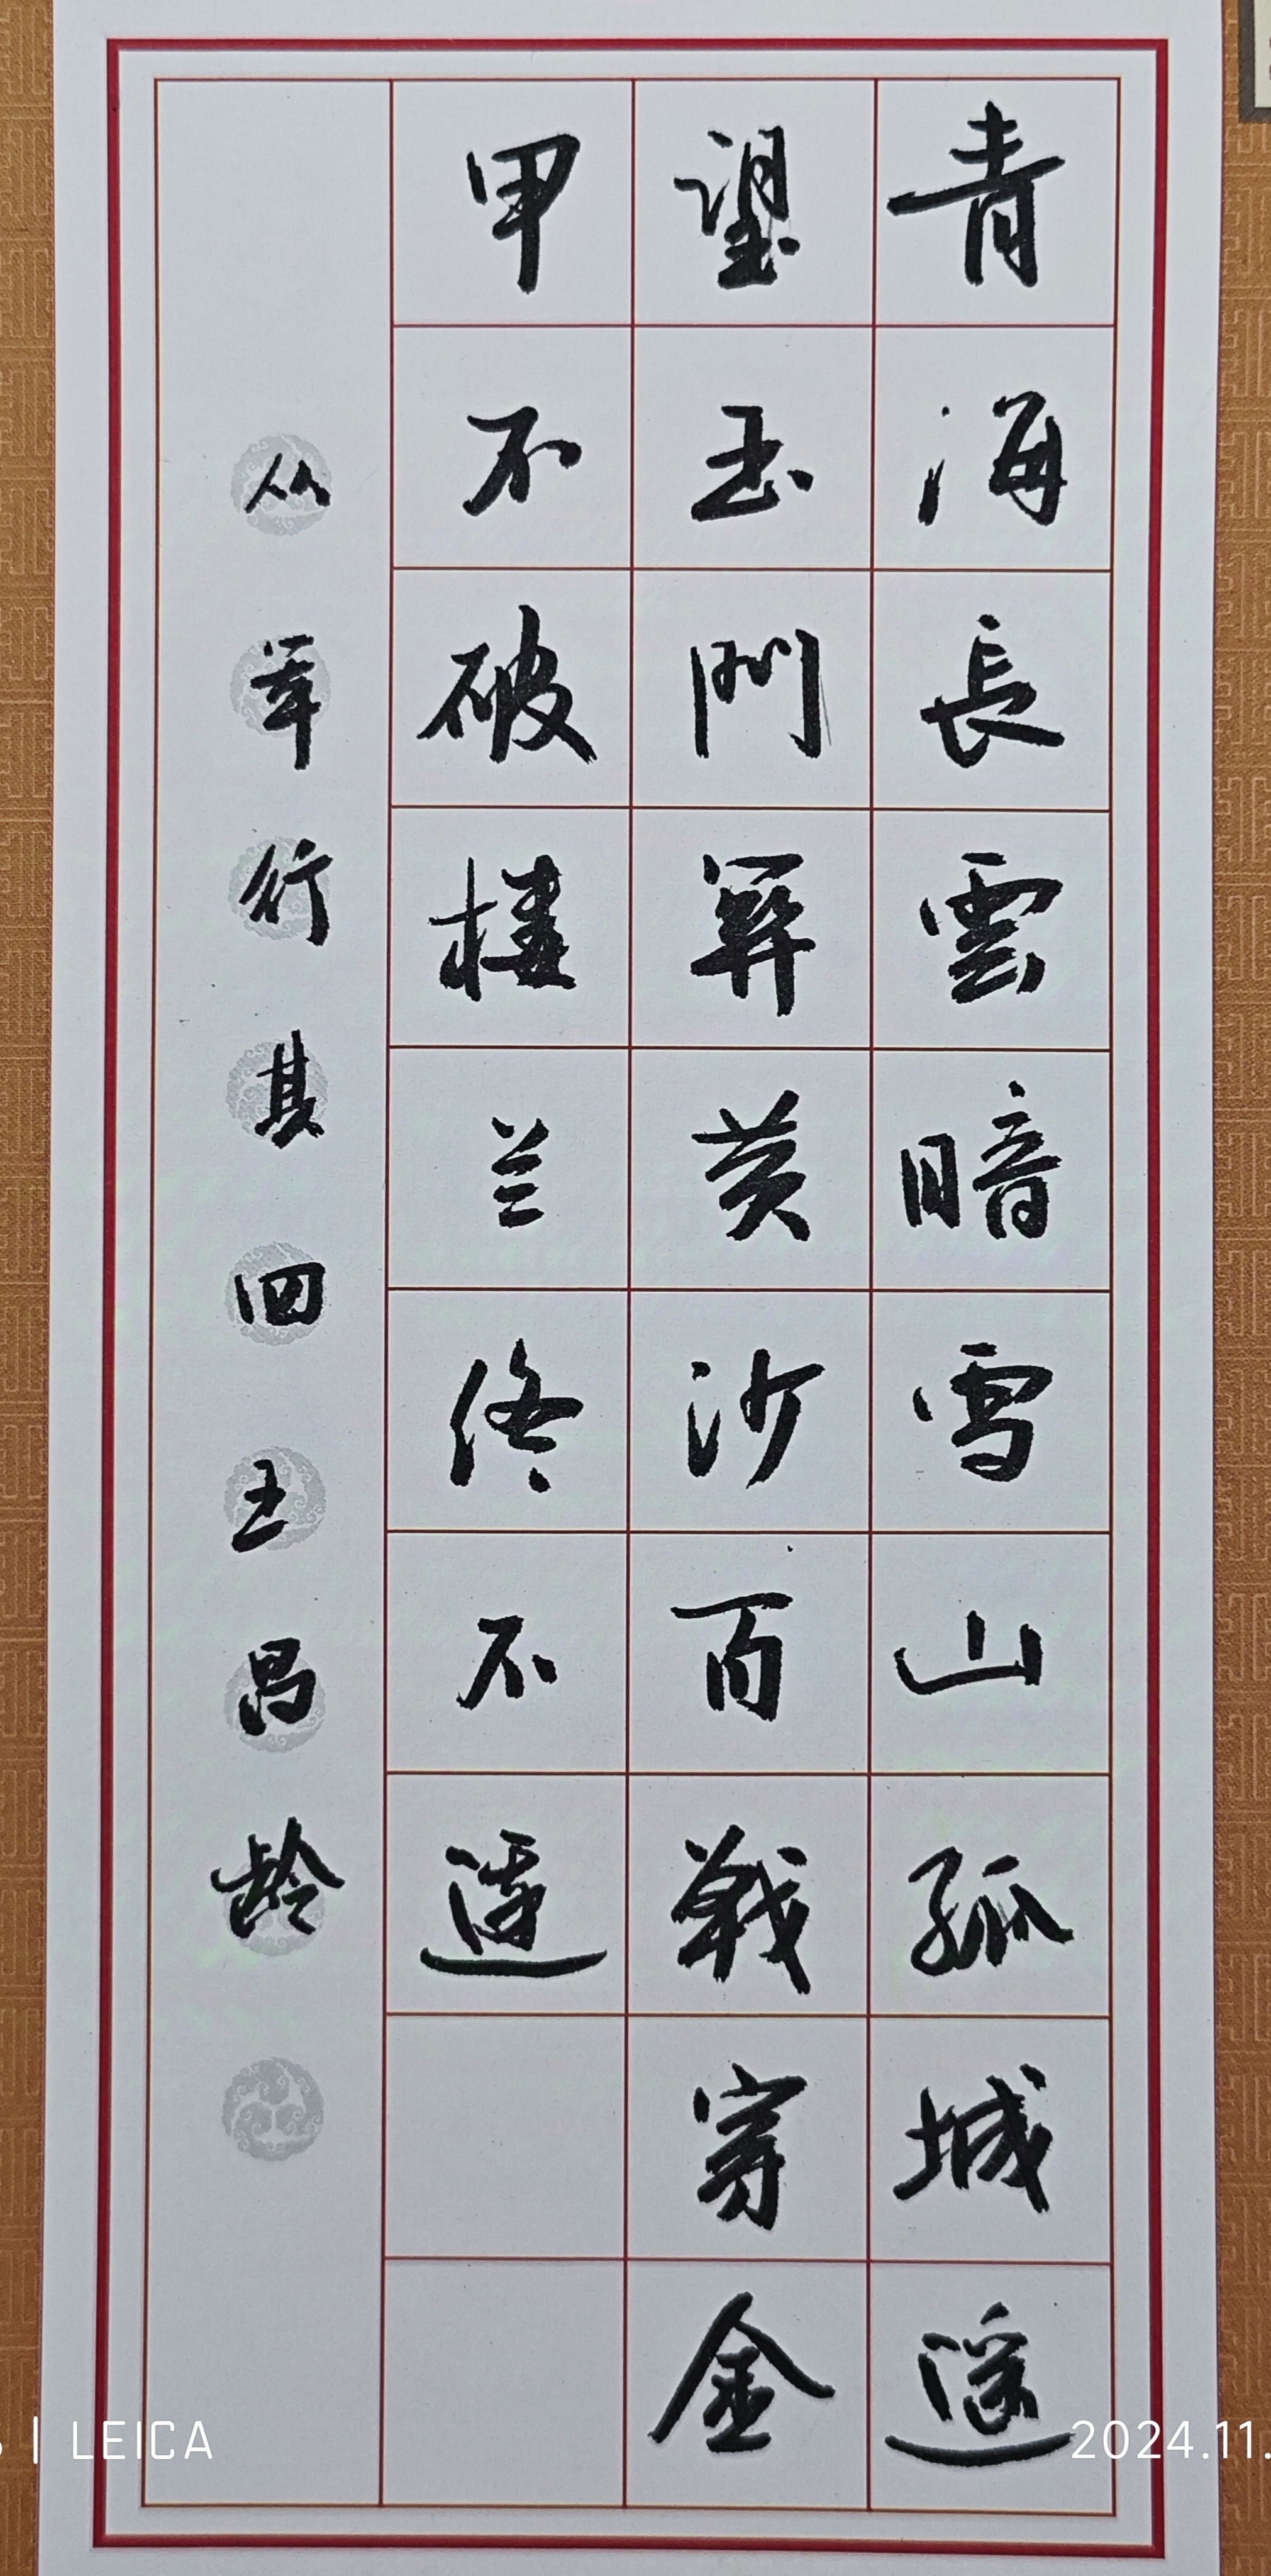 青海長雲暗雪山孤城遥
望玉門關黄沙百戰穿金
甲不破楼兰终不还
从军行其四王昌龄
LEICA
2024.11.